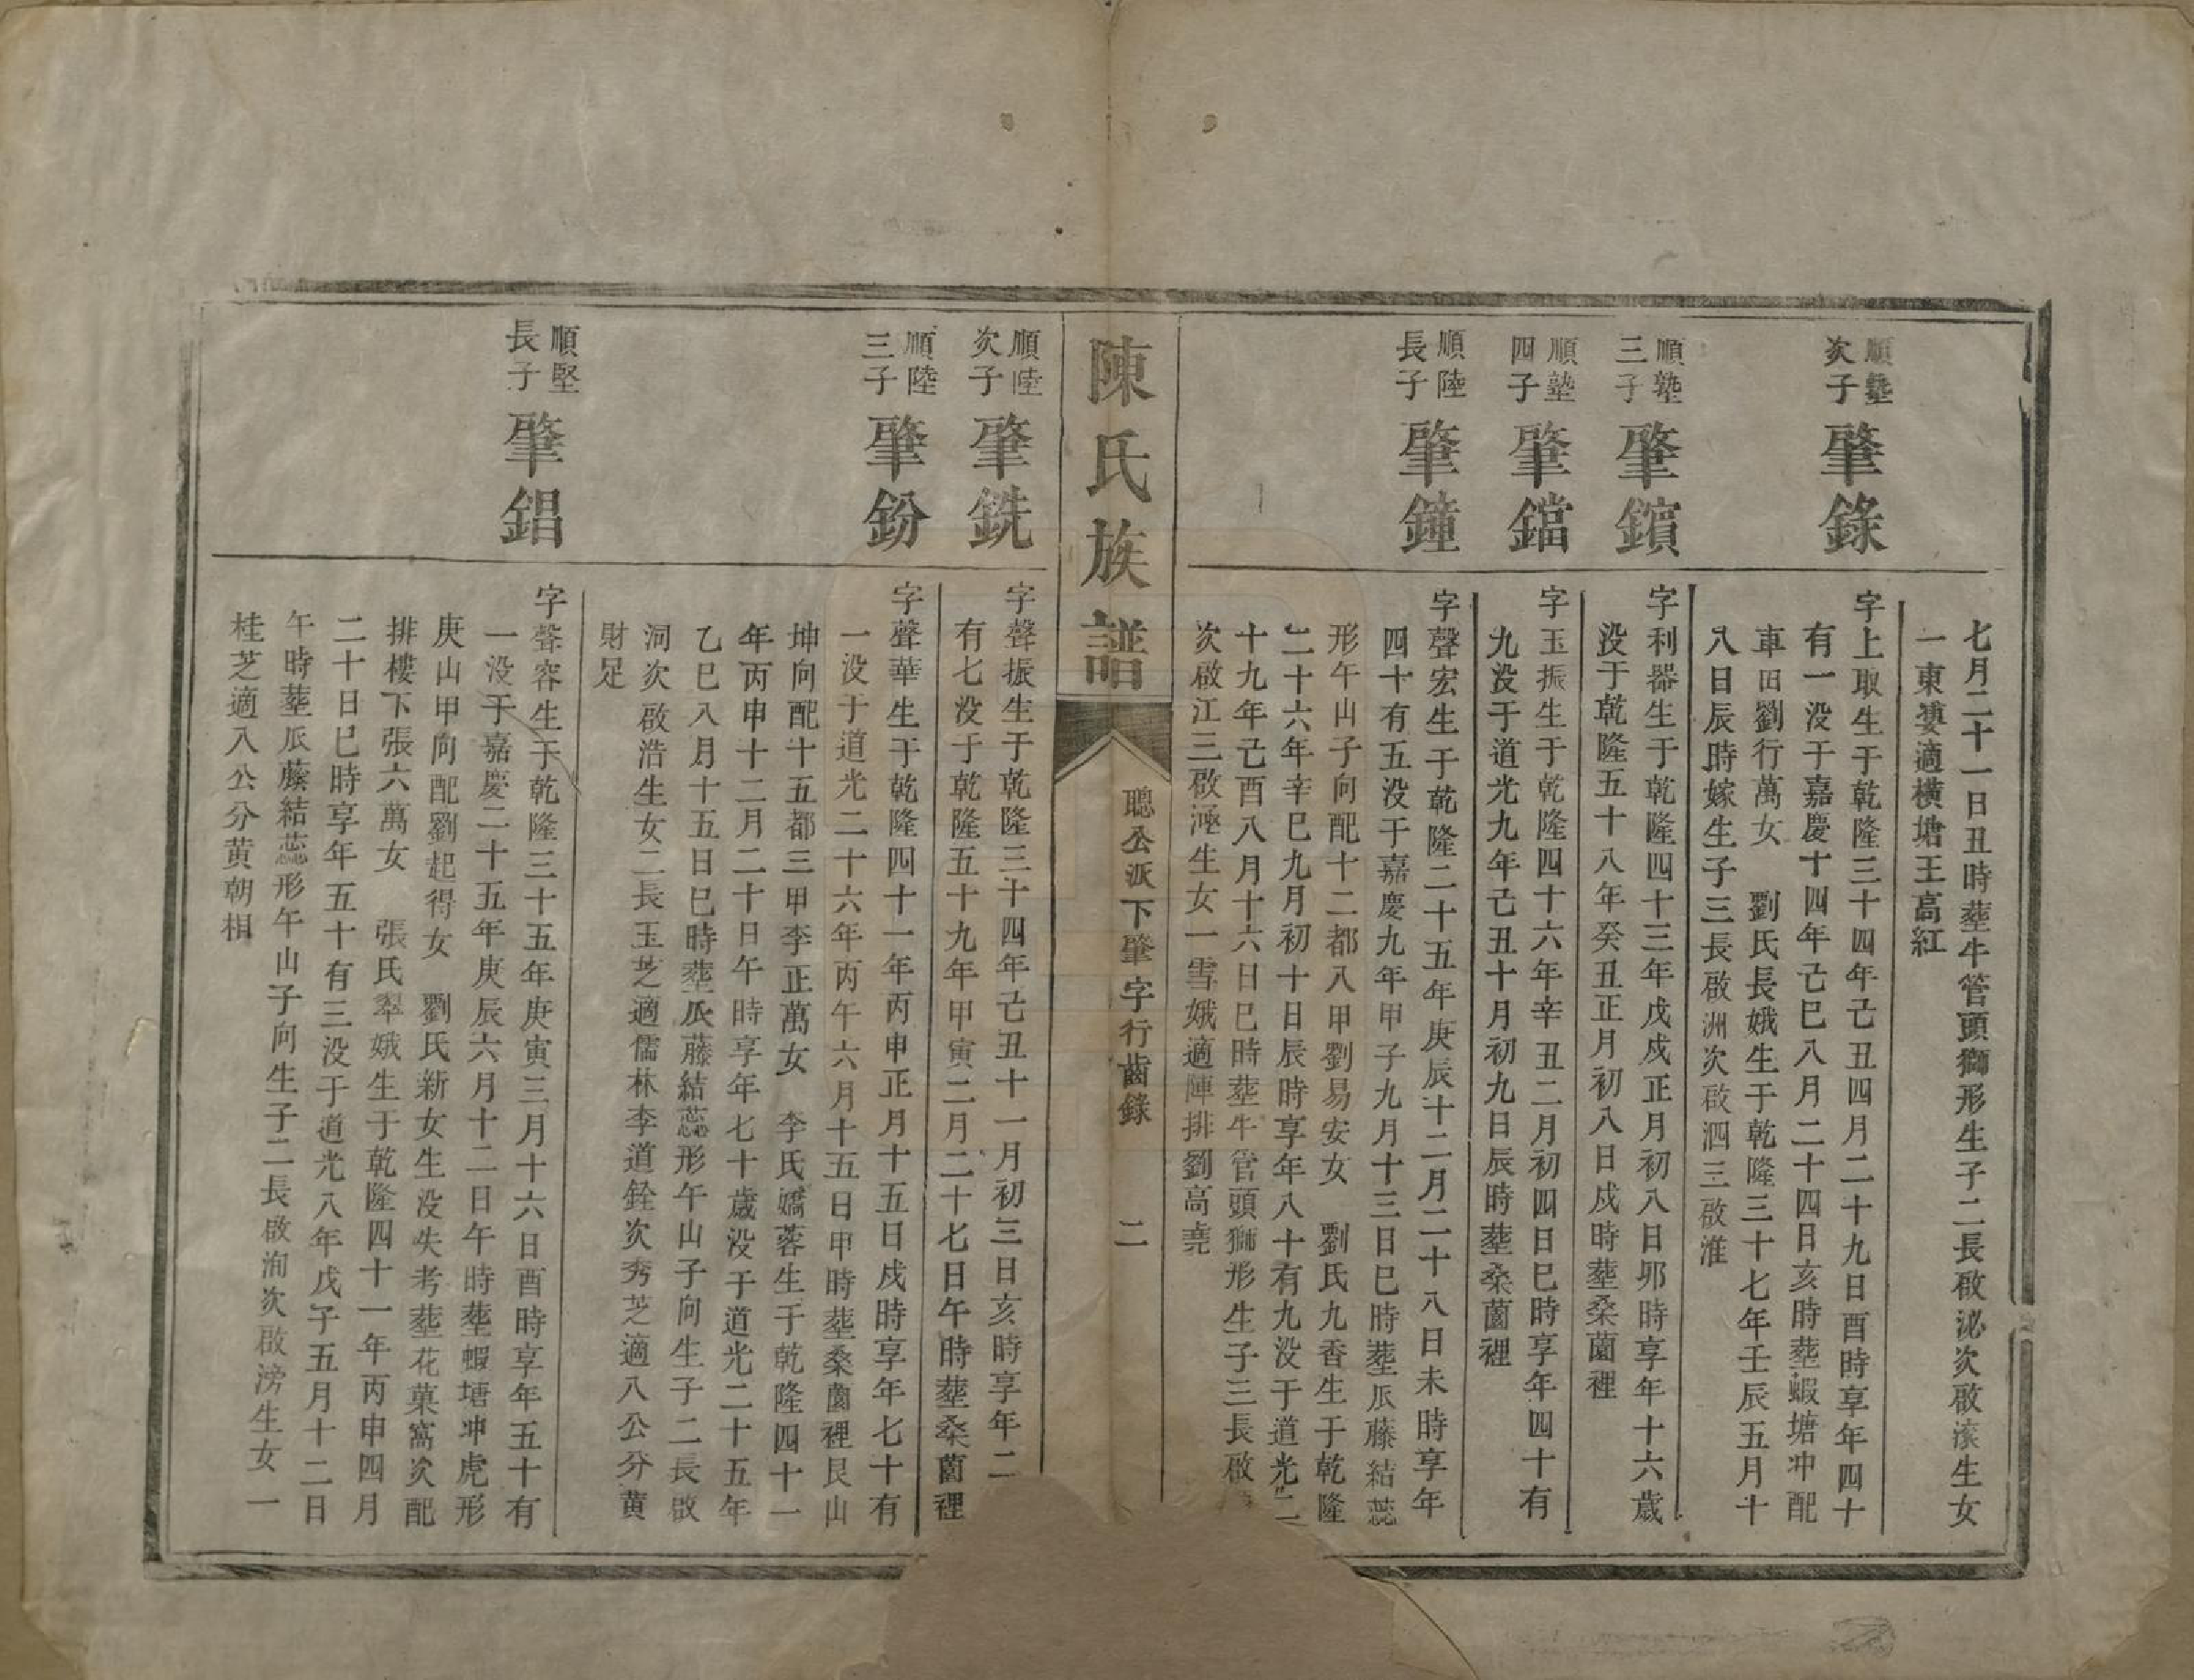 七月二十一日丑時塟牛管頭獅形生子二長啟泌次啟滾生女
一東蓌適橫塘王高紅
順墊次子
肇錄
字上取生于乾隆三十四年己丑四月二十九日酉時享年四十
有一没于嘉慶十四年己巳八月二十四日亥時塟蝦塘冲配
車田劉行萬女　劉氏長娥生于乾隆三十七年壬辰五月十
八日辰時嫁生子三長啟洲次啟泗三啟淮
順墊三子
肇鑌
字利器生于乾隆四十三年戊戌正月初八日夘時享年十六歲
没于乾隆五十八年癸丑正月初八日戌時塟桑薗裡
順墊四子
肇鐺
字玉振生于乾隆四十六年辛丑二月初四日巳時享年四十有
九没于道光九年己丑十月初九日辰時塟桑薗裡
順陸長子
肇鐘
字聲宏生于乾隆二十五年庚辰十二月二十八日未時享年
四十有五没于嘉慶九年甲子九月十三日巳時塟瓜藤結蕊
形午山子向配十二都八甲劉易安女　劉氏九香生于乾隆
二十六年辛巳九月初十日辰時享年八十有九没于道光二
十九年己酉八月十六日巳時塟牛管頭獅形生子三長啟
次啟江三啟洆生女一雪娥適陣排劉高堯
陳氏族譜
聰公派下肇字行齒錄
二
順陸次子
肇銑
字聲振生于乾隆三十四年己丑十一月初三日亥時享年二
有七没于乾隆五十九年甲寅二月二十七日午時塟桑薗裡
順陸三子
肇鈖
字聲華生于乾隆四十一年丙申正月十五日戌時享年七十有
一没于道光二十六年丙午六月十五日甲時塟桑薗裡艮山
坤向配十五都三甲李正萬女　李氏嬌蓉生于乾隆四十一
年丙申十二月二十日午時享年七十歲没于道光二十五年
乙巳八月十五日巳時塟瓜藤結蕊形午山子向生子二長啟
洞次啟浩生女二長玉芝適儒林李道銓次秀芝適八公分黄
財足
順堅長子
肇錩
字聲容生于乾隆三十五年庚寅三月十六日酉時享年五十有
一没于嘉慶二十五年庚辰六月十二日午時塟蝦塘冲虎形
庚山甲向配劉起得女　劉氏新女生没失考塟花菓窩次配
排樓下張六萬女　張氏翠娥生于乾隆四十一年丙申四月
二十日巳時享年五十有三没于道光八年戊子五月十二日
午時塟瓜藤結蕊形午山子向生子二長啟洵次啟滂生女一
桂芝適八公分黄朝相